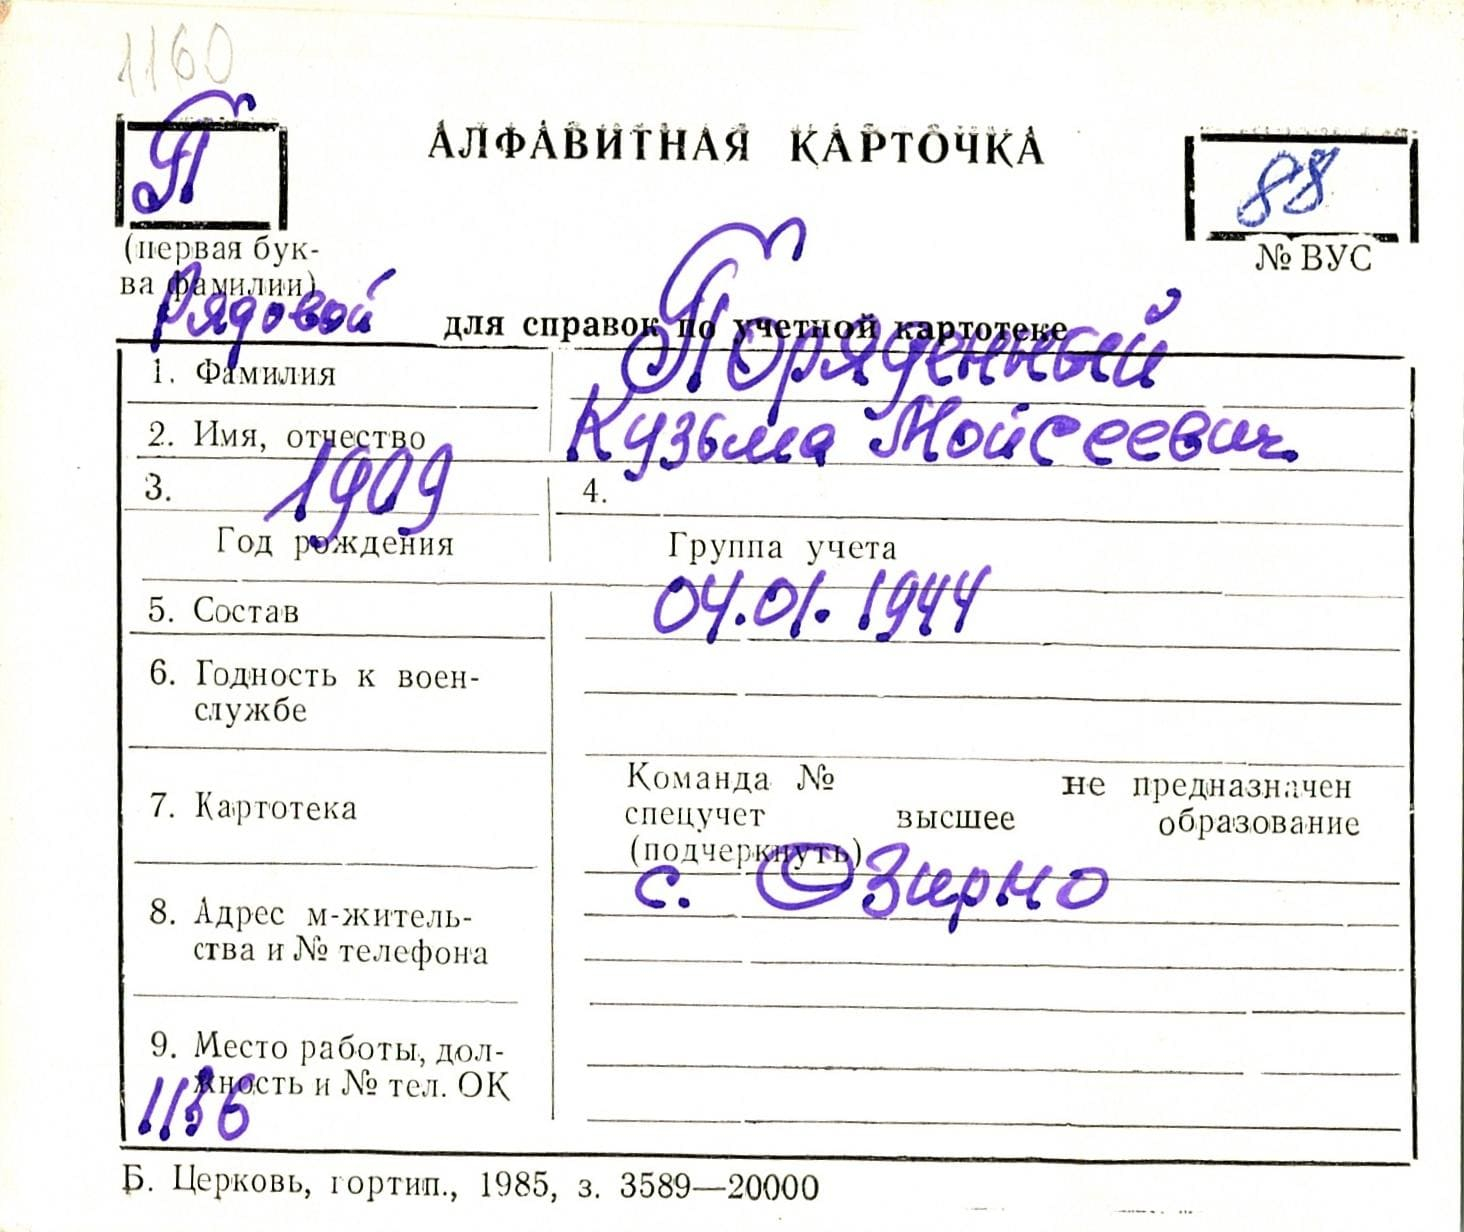 1160
П
АЛФАВИТНАЯ КАРТОЧКА
88
(первая бук-
ва фамилии)
№ ВУС
Рядовой
для справок по учетной картотеке
1. Фамилия Поряденный
2. Имя, отчество Кузьма Мойсеевич
3. 1909 4.
Год рождения Группа учета
5. Состав 04.01.1944
6. Годность к воен-
службе
Команда № не предназначен
7. Картотека спецучет высшее образование
(подчеркнуть)
8. Адрес м-житель- с. Озирно
ства и № телефона
9. Место работы, дол-
жность и № тел. ОК
1136
Б. Церковь, гортип., 1985, з. 3589—20000